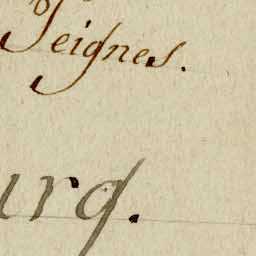 Teignes.
urg.